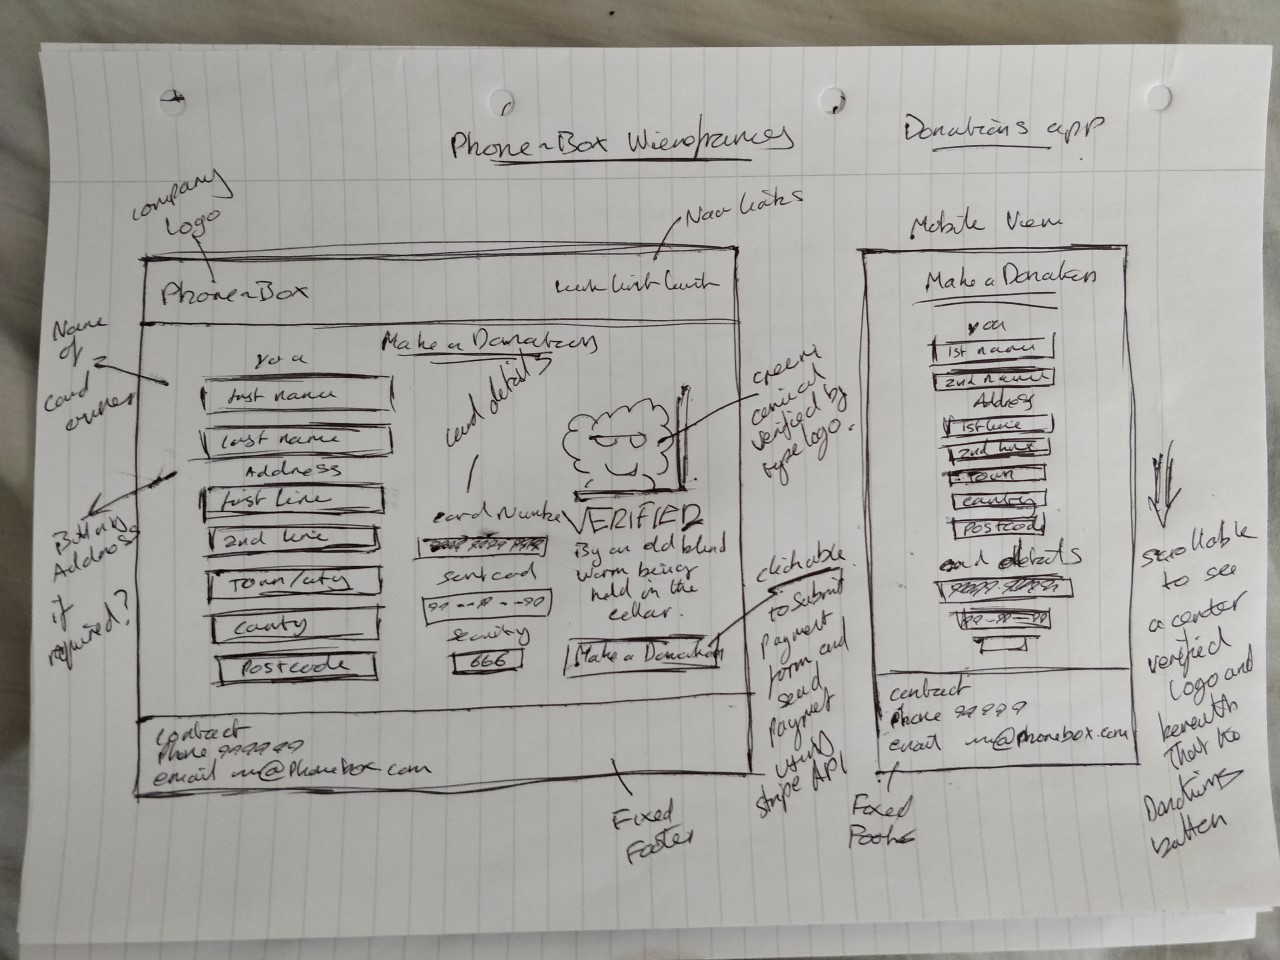 Phone-Box Wierframes
Donations app
company
logo
Nav links
Phone-Box
link link link
Name
of
card
owner
Make a Donation
you
first name
last name
Address
first line
2nd line
Town/city
County
Postcode
Address
if
required?
card details
card Number
sort cod
99--99--99
security
666
VERIFIED
By an old blind
worm being
held in the
cellar.
Make a Donation
verified by
type logo.
clickable
to submit
payment
form and
send
payment
using
Stripe API
contact
Phone 999999
email me@Phonebox.com
Fixed
Footer
Mobile View
Make a Donation
you
1st name
2nd name
Address
1st line
2nd line
Town
County
Postcode
card details
99-99-99
contact
Phone 99999
email me@phonebox.com
Fixed
Footer
scrollable
to see
a center
verified
logo and
beneath
that the
Donations
button